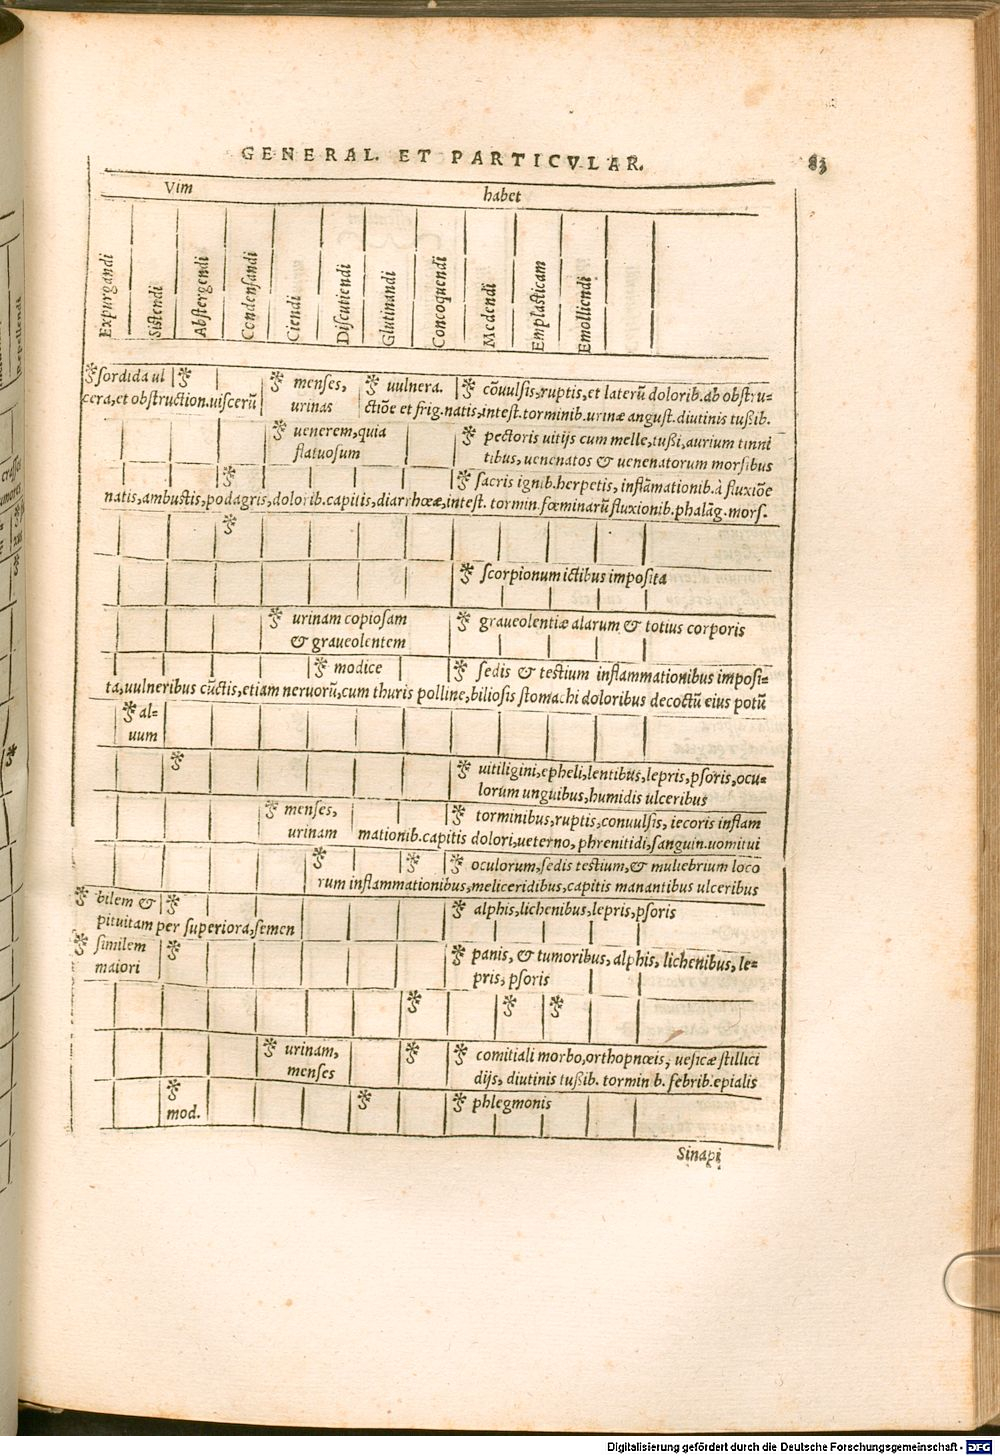 GENERAL. ET PARTICVLAR. 83
Vim habet
Expurgandi
Sistendi
Abstergendi
Condensandi
Ciendi
Discutiendi
Glutinandi
Concoquendi
Medendi
Emplasticam
Emolliendi
sordida ul menses, uulnera. cõuulsis,ruptis,et laterũ dolorib.ab obstru=
cera,et obstruction.uiscerũ urinas ctiõe et frig.natis,intest.torminib.urinæ angust.diutinis tußib.
uenerem,quia pectoris uitijs cum melle,tußi,aurium tinni
flatuosum tibus,uenenatos & uenenatorum morsibus
sacris ignib.herpetis, inflãmationib.à fluxiõe
natis,ambustis,podagris,dolorib.capitis,diarrhœæ,intest. tormin.fœminarũ fluxionib.phalãg.mors.
scorpionum ictibus imposita
urinam copiosam graueolentiæ alarum & totius corporis
& graueolentem
modice sedis & testium inflammationibus imposi=
ta,uulneribus cũctis,etiam neruorũ,cum thuris polline,biliosis stomachi doloribus decoctũ eius potũ
al=
uum
uitiligini,epheli,lentibus,lepris,psoris,ocu=
lorum unguibus,humidis ulceribus
menses, torminibus,ruptis,conuulsis, iecoris inflam
urinam mationib.capitis dolori,ueterno, phrenitidi,sanguin.uomitui
oculorum,sedis testium,& muliebrium loco
rum inflammationibus,meliceridibus,capitis manantibus ulceribus
bilem & alphis,lichenibus,lepris,psoris
pituitam per superiora,semen
similem panis, & tumoribus, alphis, lichenibus, le=
maiori pris, psoris
urinam, comitiali morbo,orthopnœis, uesicæ stillici
menses dijs, diutinis tußib. tormin b. febrib.epialis
mod. phlegmonis
Sinapi
Digitalisierung gefördert durch die Deutsche Forschungsgemeinschaft - DFG